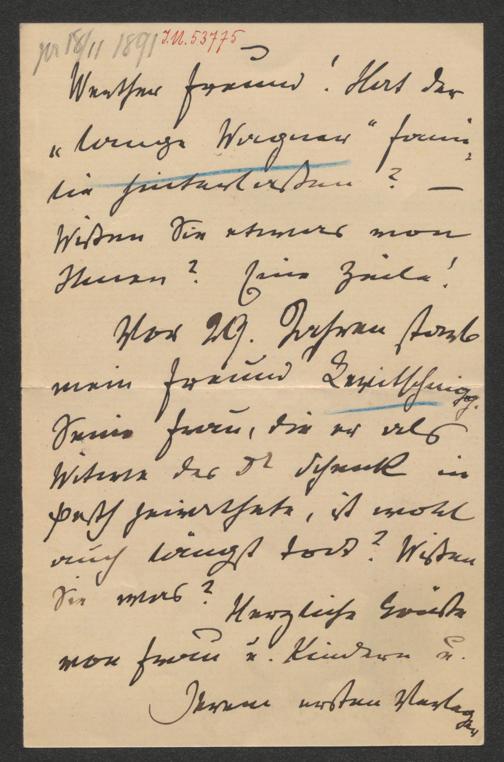 18/11 1891 J.N. 53775
Werther Freund! Hat der
„lange Wagner“ Fami-
lie hinterlaßen? –
Wißen Sie etwas von
Ihnen? Eine Zeile!
Vor 29. Jahren starb
mein Freund Levitschnigg.
Seine Frau, die er als
Witwe des Dr Schenk in
Pesth heirathete, ist wohl
auch längst todt? Wißen
Sie was? Herzliche Grüße
von Frau u. Kindern u.
Ihrem ersten Verleger